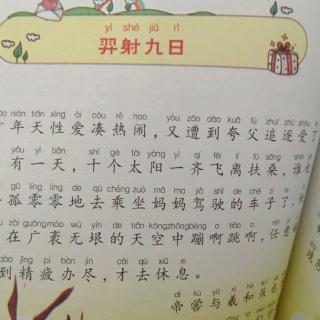 yì shè jiǔ rì
羿射九日
nián tiān xìng ài còu rè nao yòu zāo dào kuā fù zhuī zhú shòu
年天性爱凑热闹，又遭到夸父追逐受了
yǒu yì tiān shí gè tài yáng yì qí fēi lí fú sāng shéi
有一天，十个太阳一齐飞离扶桑，谁
gū líng líng de qù chéng zuò mā ma jià shǐ de chē zi le
孤零零地去乘坐妈妈驾驶的车子了，
zài guǎng mào wú yín de tiān kōng zhōng bèng a tiào a rèn yì
在广袤无垠的天空中蹦啊跳啊，任意
dào jīng pí bàn jìn cái qù xiū xi
到精疲办尽，才去休息。
dì kù yǔ xī hé suī yě
帝喾与羲和虽也